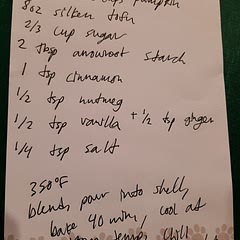 pumpkin
8oz silken tofu
2/3 cup sugar
2 tbsp arrowroot starch
1 tsp cinnamon
1/2 tsp nutmeg
1/2 tsp vanilla + 1/2 tsp ginger
1/4 tsp salt
350°F
blend, pour into shell,
bake 40 min, cool at
temp, chill